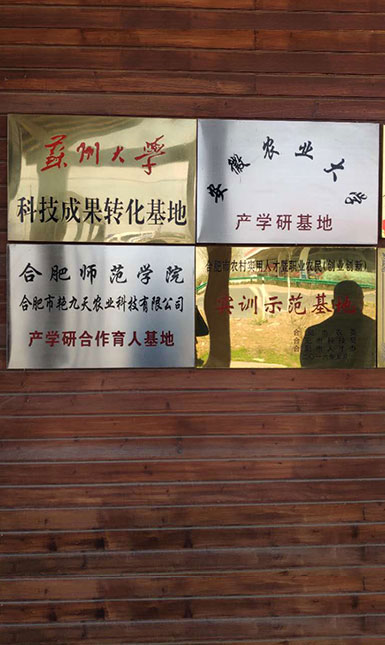 蘇州大學
科技成果转化基地
安徽农业大学
产学研基地
合肥师范学院
合肥市艳九天农业科技有限公司
产学研合作育人基地
合肥市农村实用人才暨职业农民(创业创新)
实训示范基地